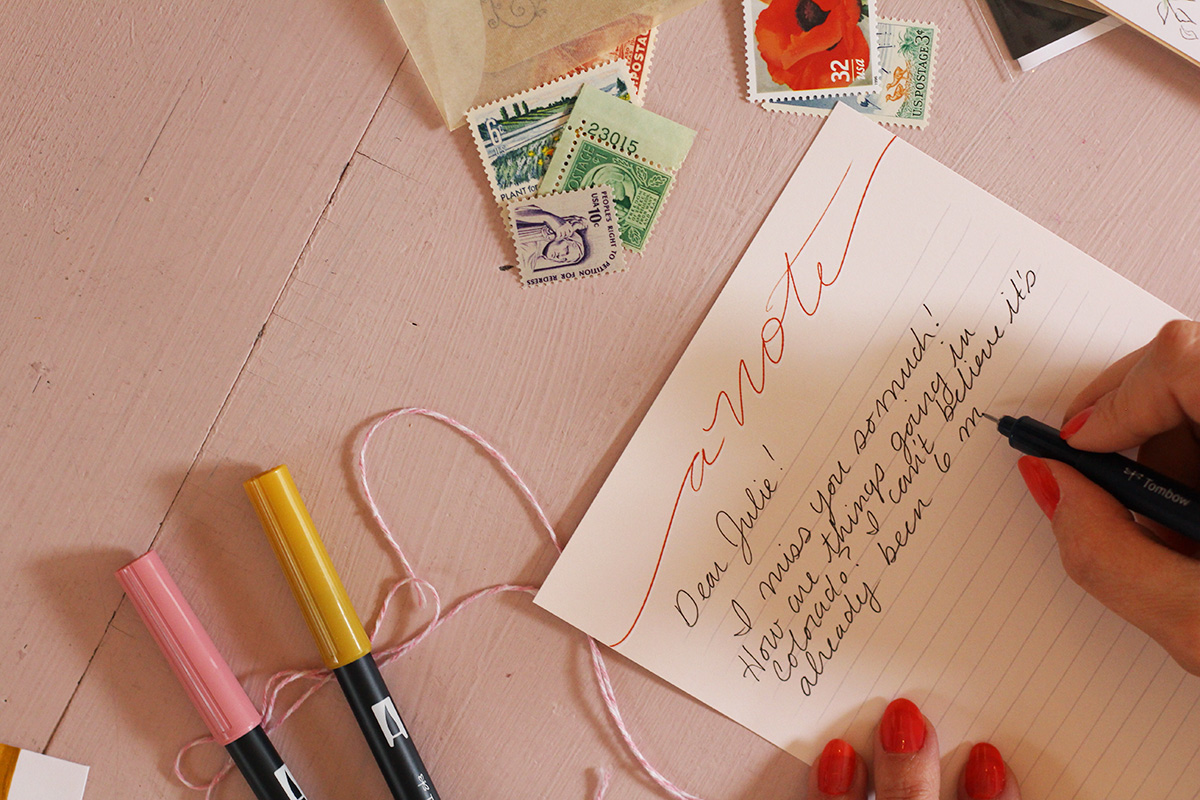 POSTA
6¢
PLANT for
23015
POSTAGE
USA 10c
PEOPLE'S RIGHT TO PETITION FOR REDRESS
32
usa
U.S. POSTAGE 3¢
a note
Dear Julie!
I miss you so much!
How are things going in
Colorado? I can't believe it's
already been 6 m
Tombow